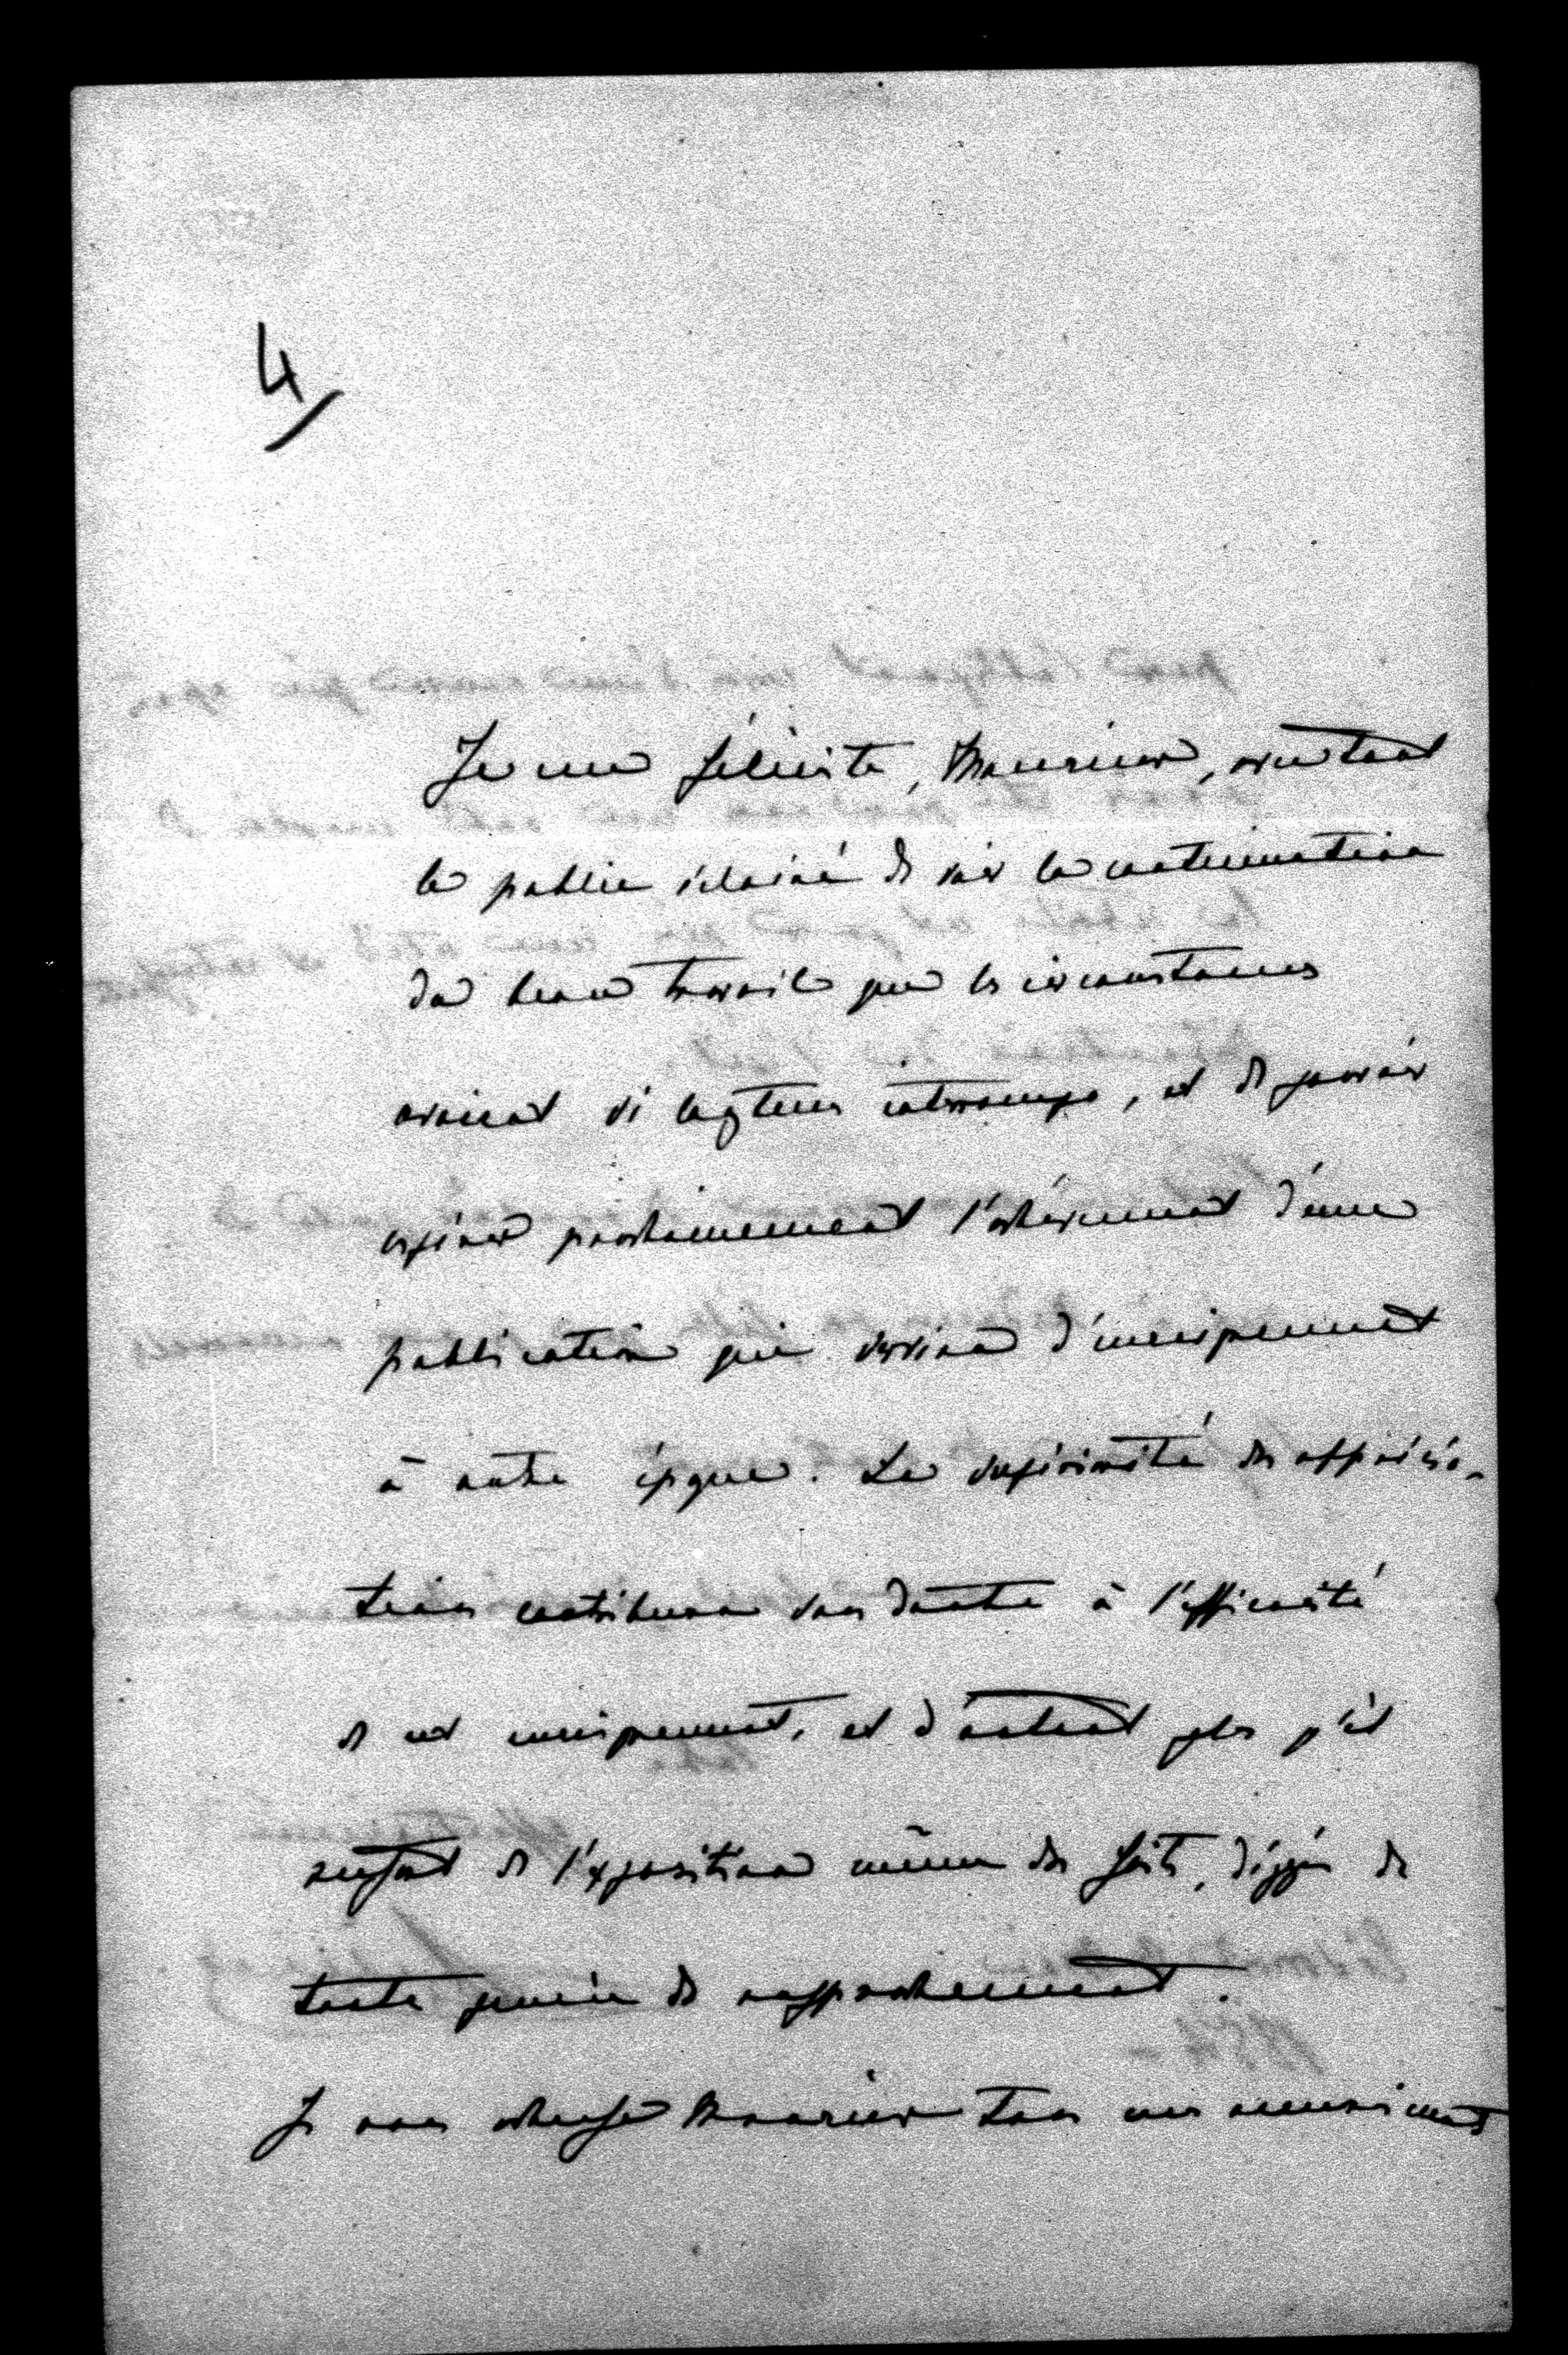 4/
Je me félicite, Monsieur, avec tout
le public éclairé de voir la continuation
du beau travail que les circonstances
avaient si longtems interrompu, et de pouvoir
espérer prochainement l'achèvement d'une
publication qui servira d'enseignement
à notre époque. La supériorité des apprécia-
tions contribuera sans doute à l'efficacité
de cet enseignement, et d'autant plus qu'il
ressort de l'exposition même des faits, dégagés de
toute pensée de rapprochement.
Je vous adresse Monsieur tous mes remerciments